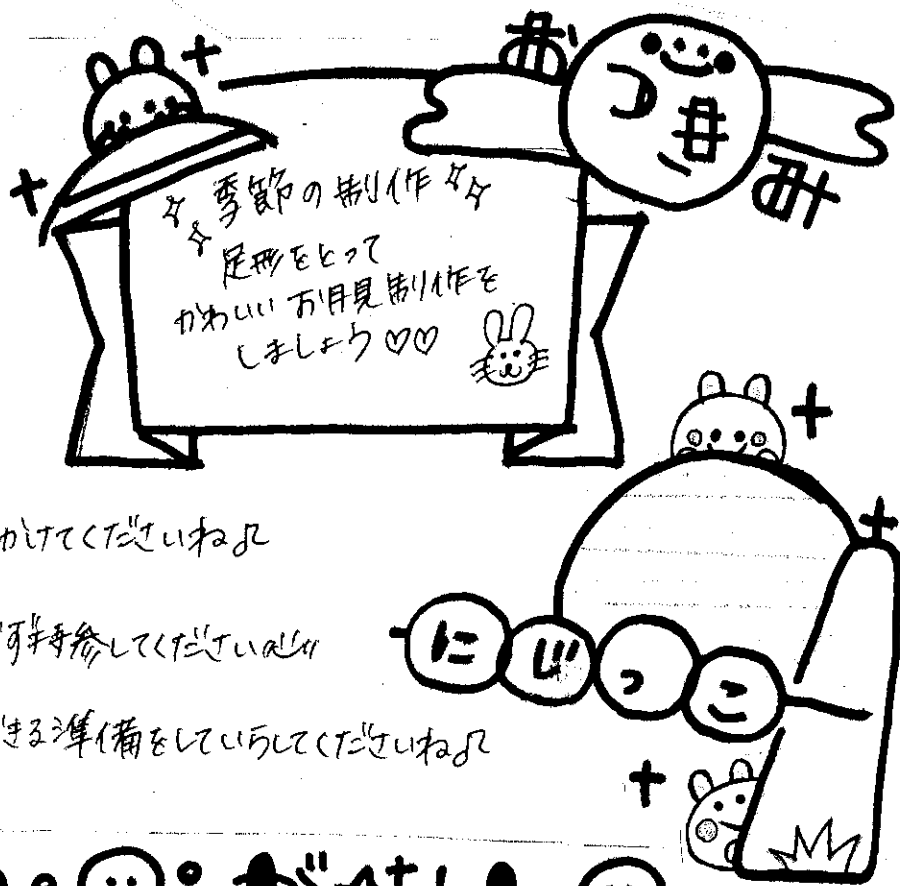 季節の制作
足形をとって
かわいい お月見制作を
しましょう♡♡
かけてくださいね♫
ず持参してください
きる準備をしていらしてくださいね♫
にじっこ